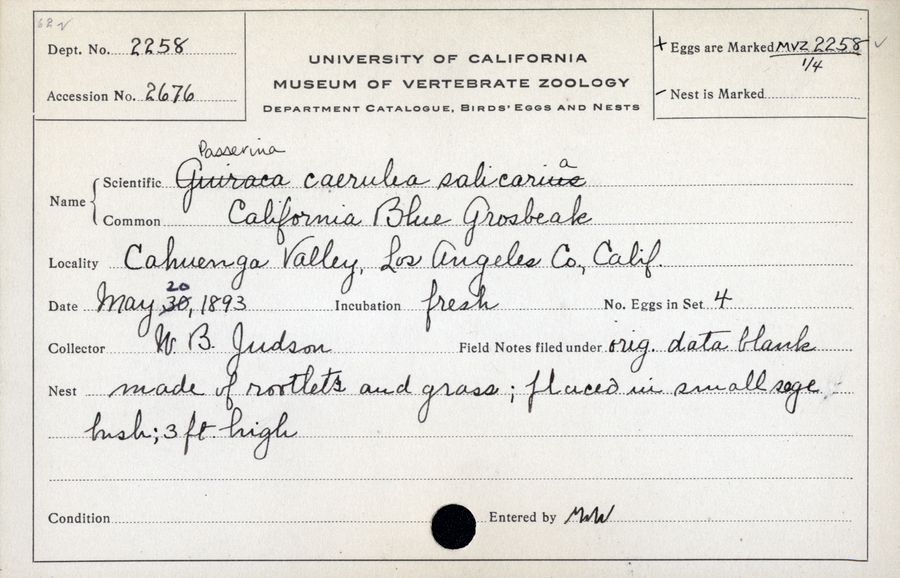 62
Dept. No. 2258
Accession No. 2676
UNIVERSITY OF CALIFORNIA
MUSEUM OF VERTEBRATE ZOOLOGY
DEPARTMENT CATALOGUE, BIRDS' EGGS AND NESTS
+ Eggs are Marked MVZ 2258 ✓
1/4
- Nest is Marked
Passerina
Name { Scientific Guiraca caerulea salicarius a
Common California Blue Grosbeak
Locality Cahuenga Valley, Los Angeles Co., Calif.
20
Date May 30, 1893 Incubation fresh No. Eggs in Set 4
Collector W. B. Judson Field Notes filed under orig. data blank
Nest made of rootlets and grass; placed in small sage
bush; 3 ft. high
Condition Entered by